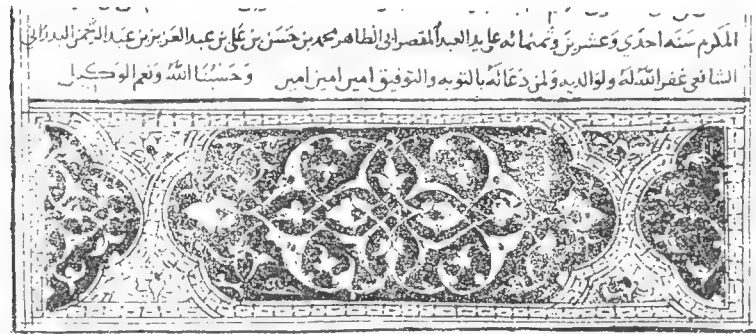 المكرم سنه احدي وعشرين وثمنمائه علي يد العبد المقصر ابي الطاهر محمد بن حسن بن علي بن عبد العزيز بن عبد الرحمن
الشافعي غفر الله له ولوالديه ولمن دعا له بالتوبه والتوفيق امين امين امين وحسبنا الله ونعم الوكيل